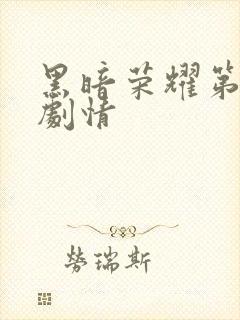 黑暗荣耀第
劇情
勞瑞斯